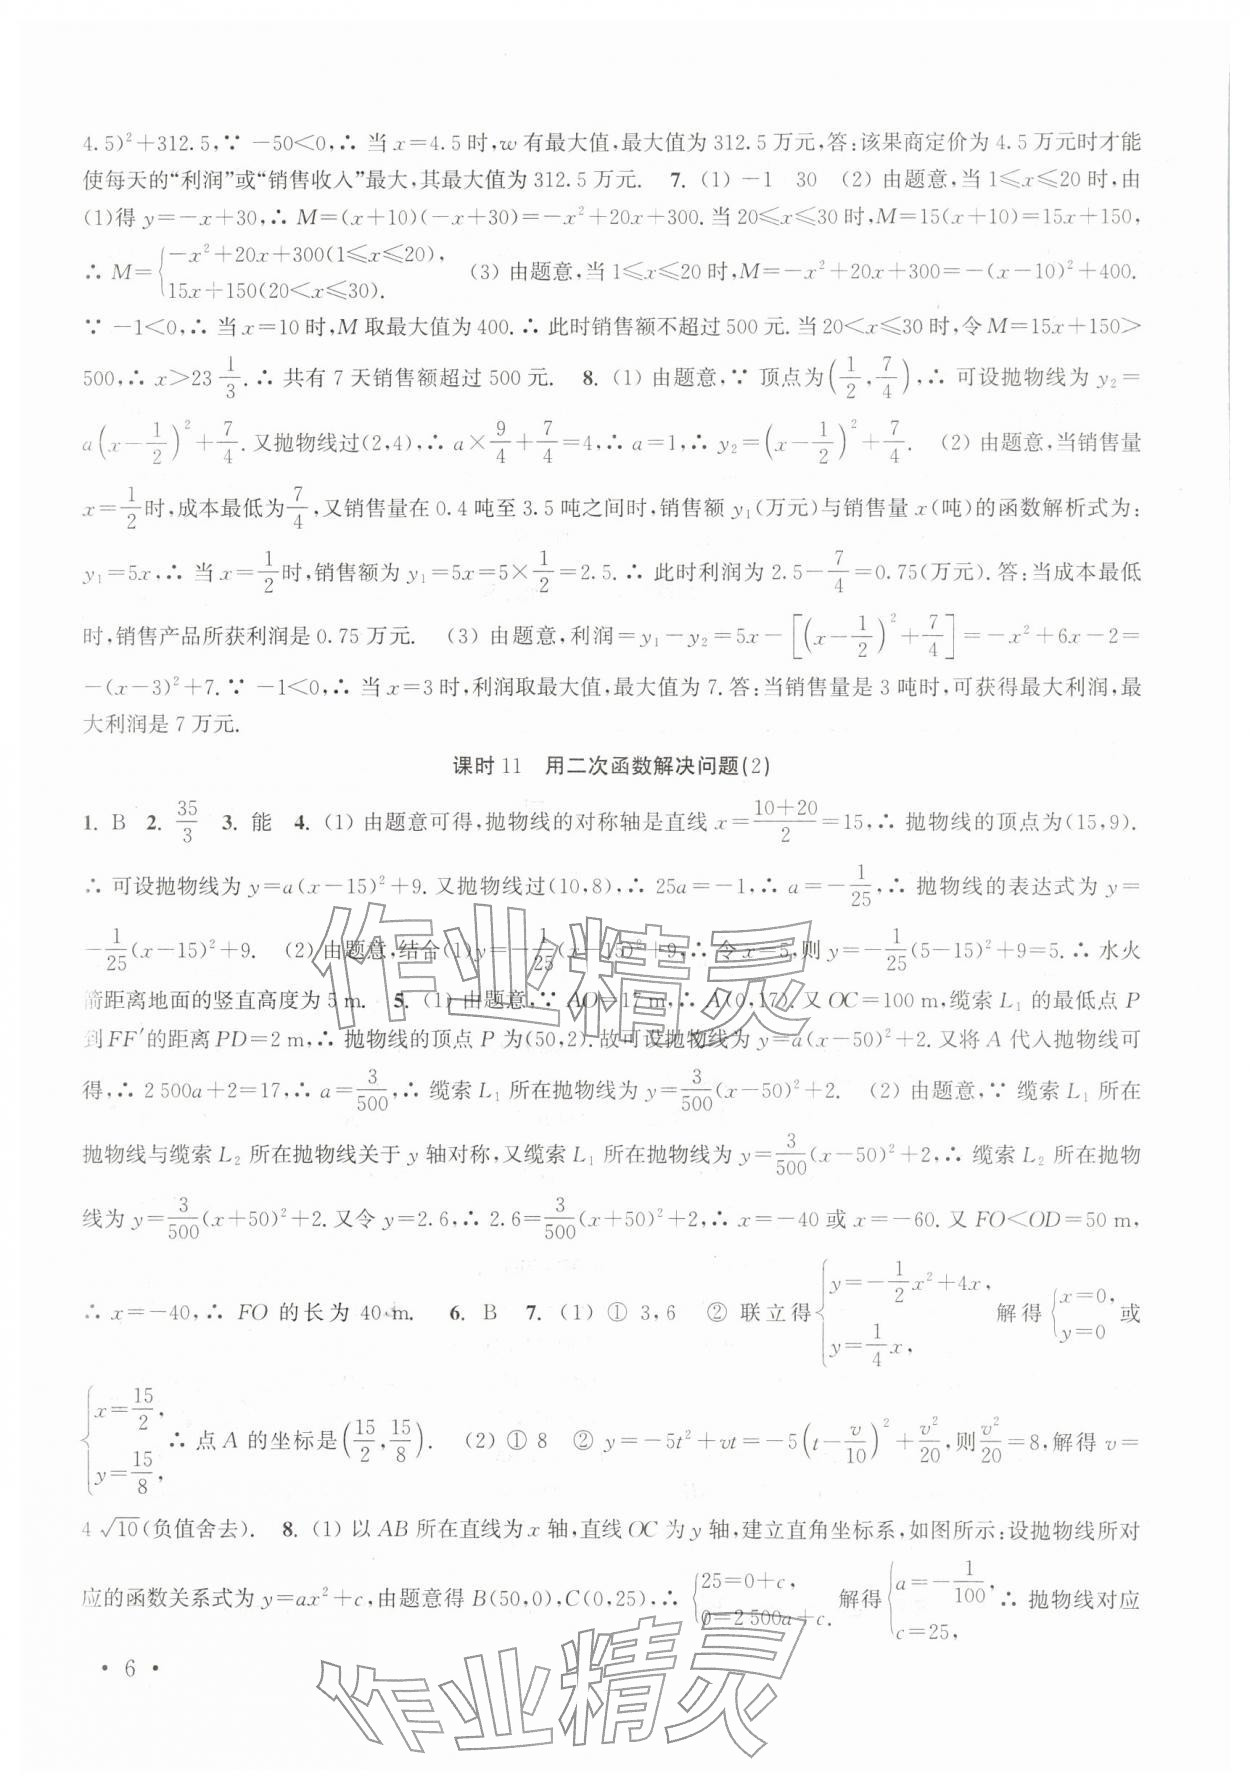 4.5)²+312.5,∵ -50<0,∴ 当 x=4.5 时,w 有最大值,最大值为 312.5 万元,答:该果商定价为 4.5 万元时才能
使每天的“利润”或“销售收入”最大,其最大值为 312.5 万元. 7. (1) -1 30 (2) 由题意,当 1≤x≤20 时,由
(1)得 y=-x+30,∴ M=(x+10)(-x+30)=-x²+20x+300.当 20≤x≤30 时,M=15(x+10)=15x+150,
∴ M={-x²+20x+300(1≤x≤20), 15x+150(20<x≤30). (3) 由题意,当 1≤x≤20 时,M=-x²+20x+300=-(x-10)²+400.
∵ -1<0,∴ 当 x=10 时,M 取最大值为 400.∴ 此时销售额不超过 500 元.当 20<x≤30 时,令 M=15x+150>
500,∴ x>23 1/3.∴ 共有 7 天销售额超过 500 元. 8. (1) 由题意,∵ 顶点为(1/2,7/4),∴ 可设抛物线为 y₂=
a(x-1/2)²+7/4.又抛物线过(2,4),∴ a×9/4+7/4=4,∴ a=1,∴ y₂=(x-1/2)²+7/4. (2) 由题意,当销售量
x=1/2时,成本最低为7/4,又销售量在 0.4 吨至 3.5 吨之间时,销售额 y₁(万元)与销售量 x(吨)的函数解析式为:
y₁=5x,∴ 当 x=1/2时,销售额为 y₁=5x=5×1/2=2.5.∴ 此时利润为 2.5-7/4=0.75(万元).答:当成本最低
时,销售产品所获利润是 0.75 万元. (3) 由题意,利润=y₁-y₂=5x-[(x-1/2)²+7/4]=-x²+6x-2=
-(x-3)²+7.∵ -1<0,∴ 当 x=3 时,利润取最大值,最大值为 7.答:当销售量是 3 吨时,可获得最大利润,最
大利润是 7 万元.
课时 11 用二次函数解决问题(2)
1. B 2. 35/3 3. 能 4. (1) 由题意可得,抛物线的对称轴是直线 x=(10+20)/2=15,∴ 抛物线的顶点为(15,9).
∴ 可设抛物线为 y=a(x-15)²+9.又抛物线过(10,8),∴ 25a=-1,∴ a=-1/25,∴ 抛物线的表达式为 y=
-1/25(x-15)²+9. (2) 由题意,结合(1)y=-1/25(x-15)²+9,∴ 令 x=5,则 y=-1/25(5-15)²+9=5.∴ 水火
箭距离地面的竖直高度为 5 m. 5. (1) 由题意,∵ AO=17 m,∴ A(0,17).又 OC=100 m,缆索 L₁ 的最低点 P
到 FF′的距离 PD=2 m,∴ 抛物线的顶点 P 为(50,2).故可设抛物线为 y=a(x-50)²+2.又将 A 代入抛物线可
得,∴ 2 500a+2=17,∴ a=3/500,∴ 缆索 L₁ 所在抛物线为 y=3/500(x-50)²+2. (2) 由题意,∵ 缆索 L₁ 所在
抛物线与缆索 L₂ 所在抛物线关于 y 轴对称,又缆索 L₁ 所在抛物线为 y=3/500(x-50)²+2,∴ 缆索 L₂ 所在抛物
线为 y=3/500(x+50)²+2.又令 y=2.6,∴ 2.6=3/500(x+50)²+2,∴ x=-40 或 x=-60.又 FO<OD=50 m,
∴ x=-40,∴ FO 的长为 40 m. 6. B 7. (1) ① 3,6 ② 联立得{y=-1/2x²+4x, y=1/4x, 解得{x=0, y=0 或
{x=15/2, y=15/8, ∴ 点 A 的坐标是(15/2,15/8). (2) ① 8 ② y=-5t²+vt=-5(t-v/10)²+v²/20,则v²/20=8,解得 v=
4√10(负值舍去). 8. (1) 以 AB 所在直线为 x 轴,直线 OC 为 y 轴,建立直角坐标系,如图所示:设抛物线所对
应的函数关系式为 y=ax²+c,由题意得 B(50,0),C(0,25),∴ {25=0+c, 0=2 500a+c. 解得{a=-1/100, c=25, ∴ 抛物线对应
• 6 •
作业精灵
作业精灵